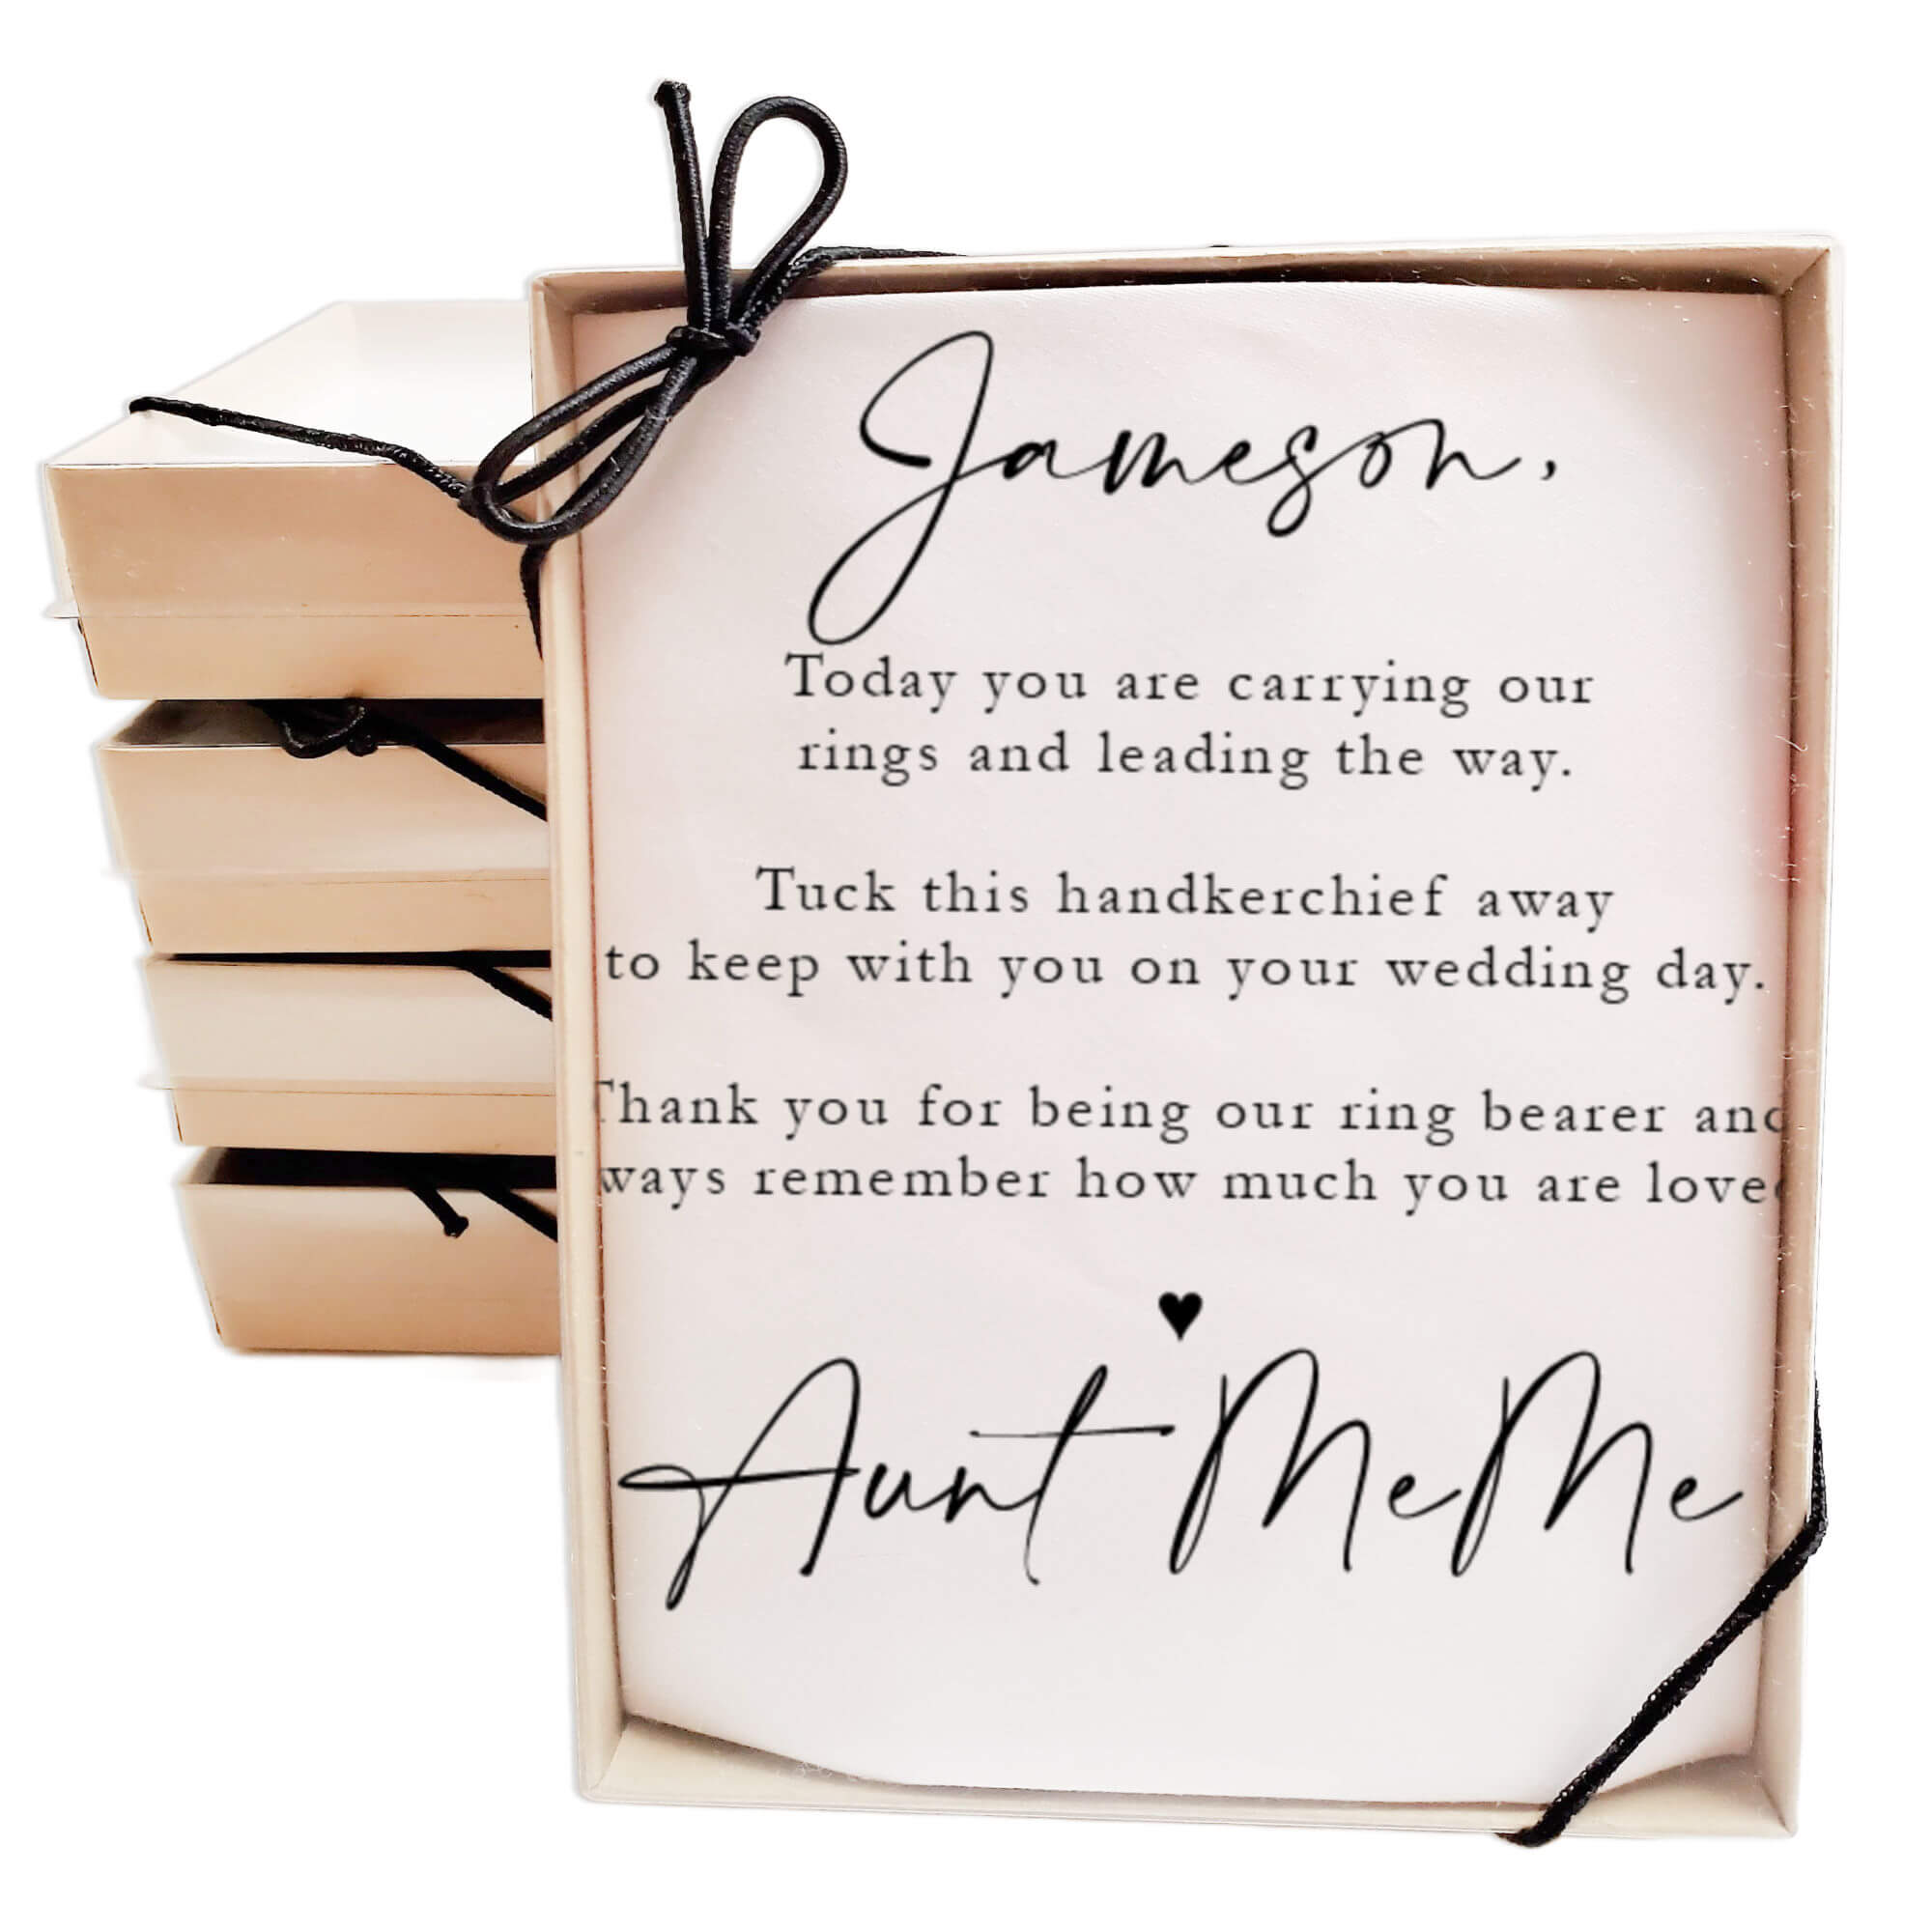 Jameson,
Today you are carrying our
rings and leading the way.
Tuck this handkerchief away
to keep with you on your wedding day.
Thank you for being our ring bearer and
ways remember how much you are love
Aunt MeMe